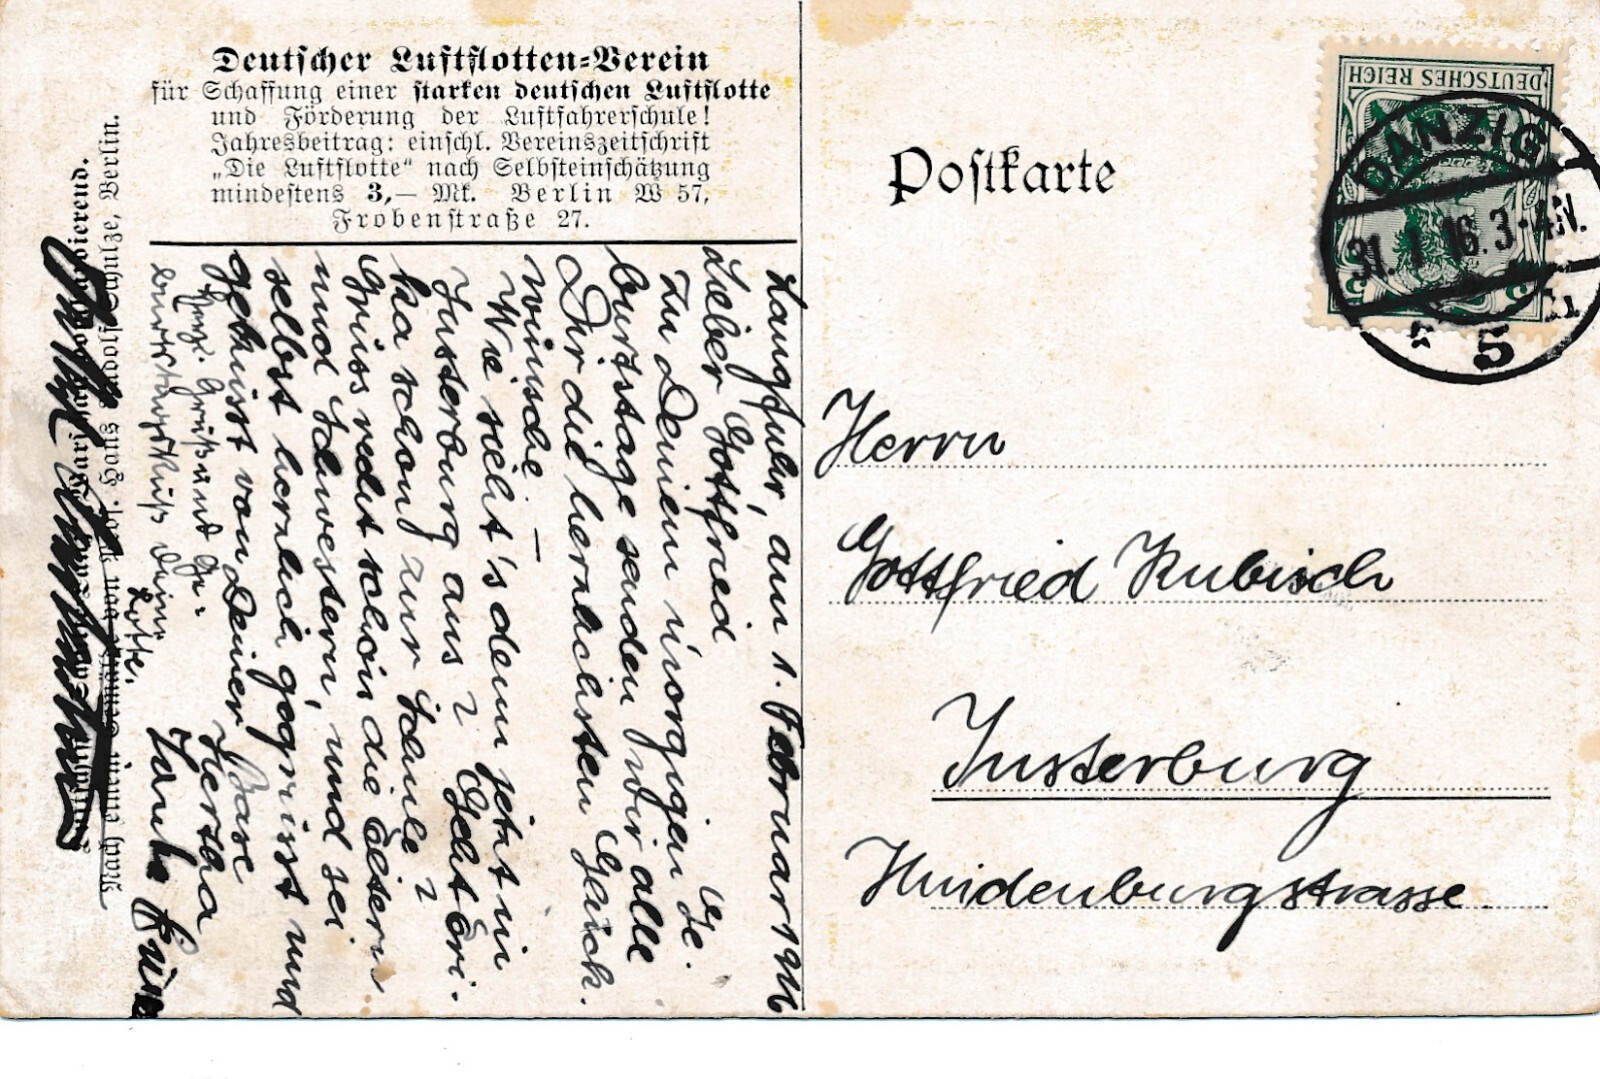 Deutscher Luftflotten-Verein
für Schaffung einer starken deutschen Luftflotte
und Förderung der Luftfahrerschule!
Jahresbeitrag: einschl. Vereinszeitschrift
„Die Luftflotte“ nach Selbsteinschätzung
mindestens 3,— Mk. Berlin W 57,
Frobenstraße 27.
Langfuhr, am 1. Februar 1916
Lieber Gottfried
Zu Deinem morgigen Ge-
burtstage senden wir alle
Dir die herzlichsten Glück-
wünsche. —
Wie sieht's denn jetzt in
Insterburg aus? Geht Eri-
ka schon zur Schule?
Grüss recht schön die Eltern
und Schwestern, und sei
selbst herzlich gegrüsst und
geküsst von Deiner Base
Hertha
Herzl. Gruß und Ge-
burtstagskuß Deine
Lotte.
Tante
Nach einem Gemälde von Prof. Hans Rudolf Schulze, Berlin.
Postkarte
DEUTSCHES REICH
5
DANZIG
31.1.16.3-4N.
* 5
Herrn
Gottfried Kubisch
Insterburg
Hindenburgstrasse.